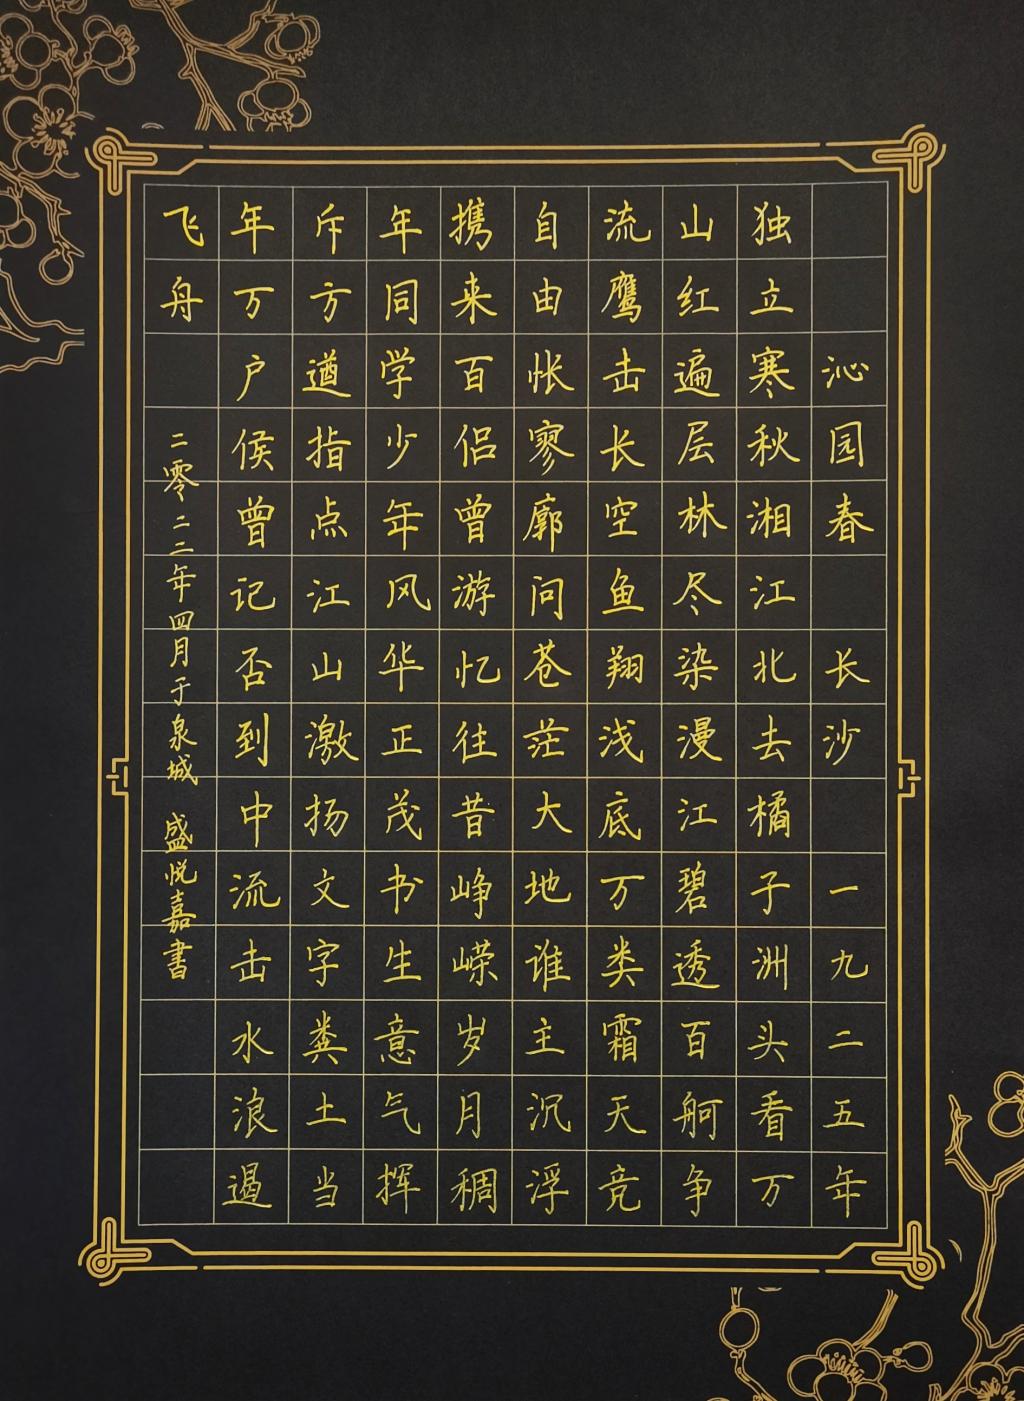 沁园春 长沙 一九二五年
独立寒秋湘江北去橘子洲头看万
山红遍层林尽染漫江碧透百舸争
流鹰击长空鱼翔浅底万类霜天竞
自由怅寥廓问苍茫大地谁主沉浮
携来百侣曾游忆往昔峥嵘岁月稠
年同学少年风华正茂书生意气挥
斥方遒指点江山激扬文字粪土当
年万户侯曾记否到中流击水浪遏
飞舟
二零二二年四月于泉城 盛悦嘉書